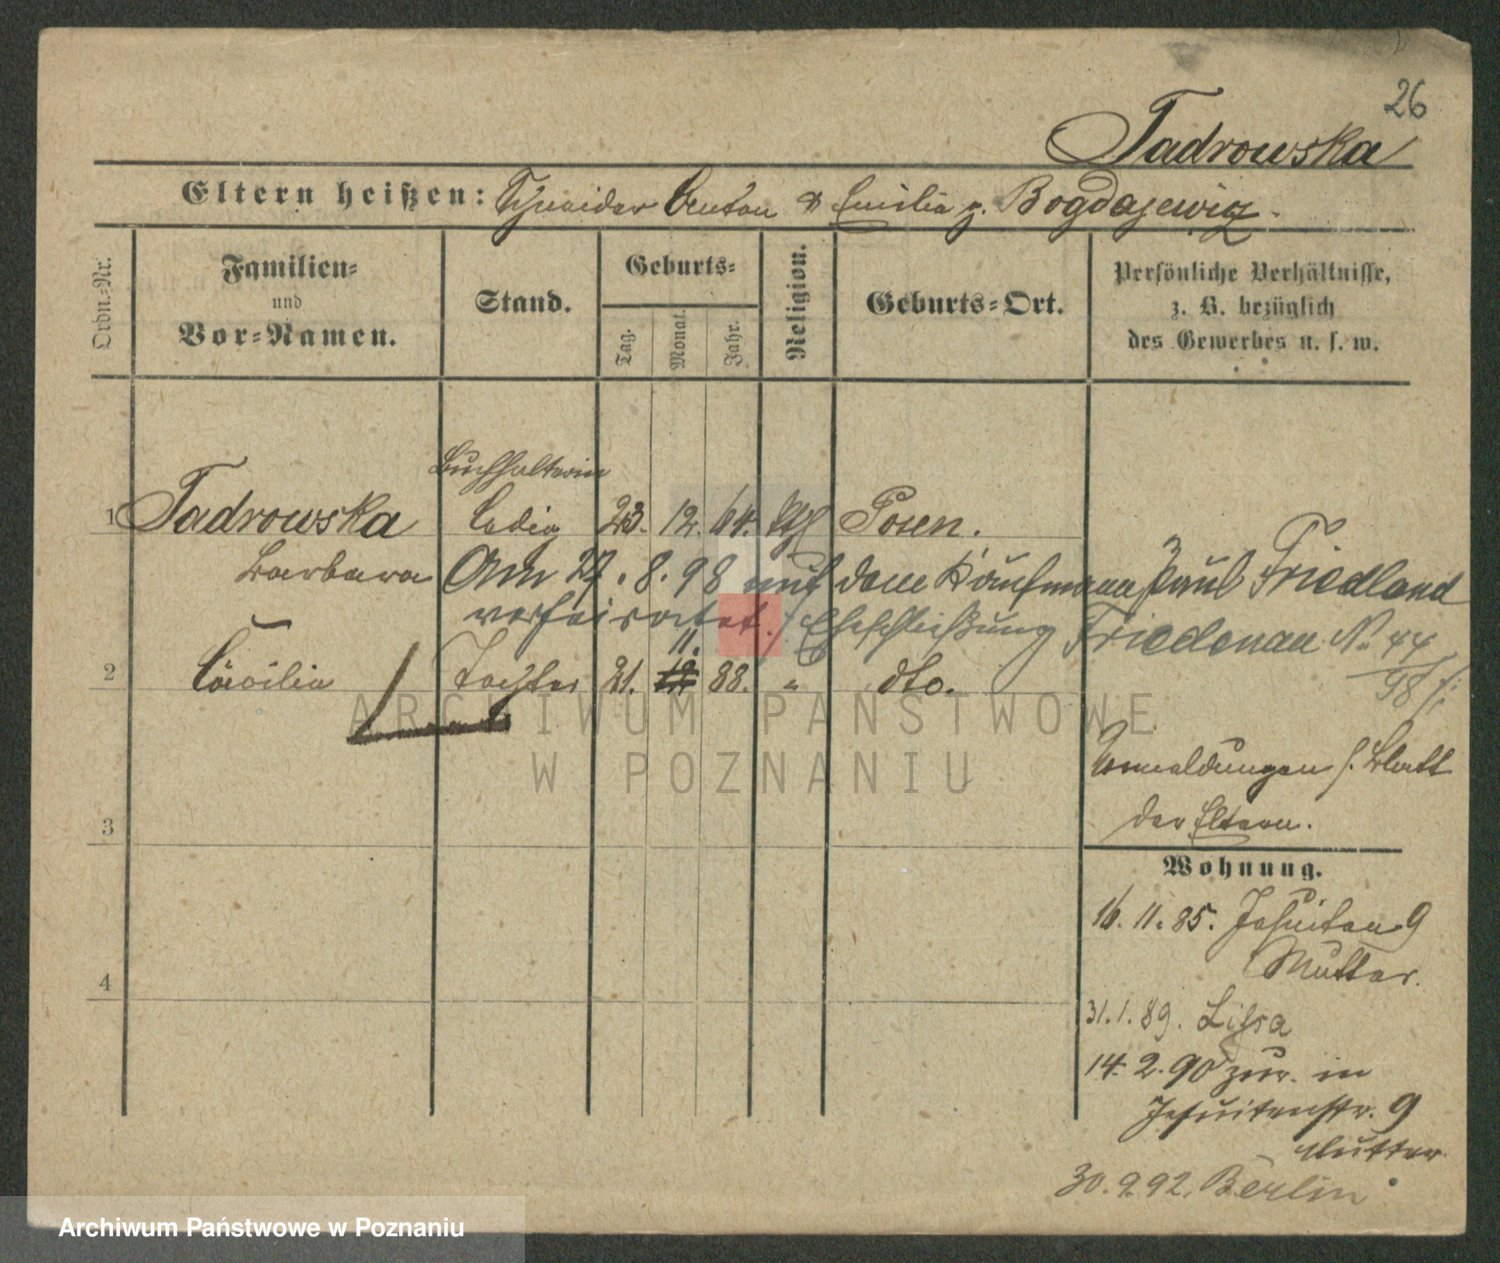 26
Tadrowska
Eltern heißen: Schneider Anton & Emilia g. Bogdajewicz.
Ordn.-Nr.
Familien-
und
Vor-Namen.
Stand.
Geburts-
Tag.
Monat.
Jahr.
Religion.
Geburts-Ort.
Persönliche Verhältnisse,
z. B. bezüglich
des Gewerbes u. s. w.
Buchhalterin
1 Tadrowska ledig 23. 12. 64. kth Posen.
Barbara Am 27.8.98 mit dem Kaufmann Paul Friedland
verheiratet. / Eheschließung Friedenau N. 44
98
11.
2 Cäcilia Tochter 21. 12 88. " dto.
Anmeldungen s. Blatt
der Eltern.
3
Wohnung.
16. 11. 85. Jesuiten 9
Mutter.
4
31. 1. 89. Lissa
14. 2. 90 zur. in
Jesuitenstr. 9
Mutter
30. 9. 92. Berlin
ARCHIWUM PAŃSTWOWE
W POZNANIU
Archiwum Państwowe w Poznaniu